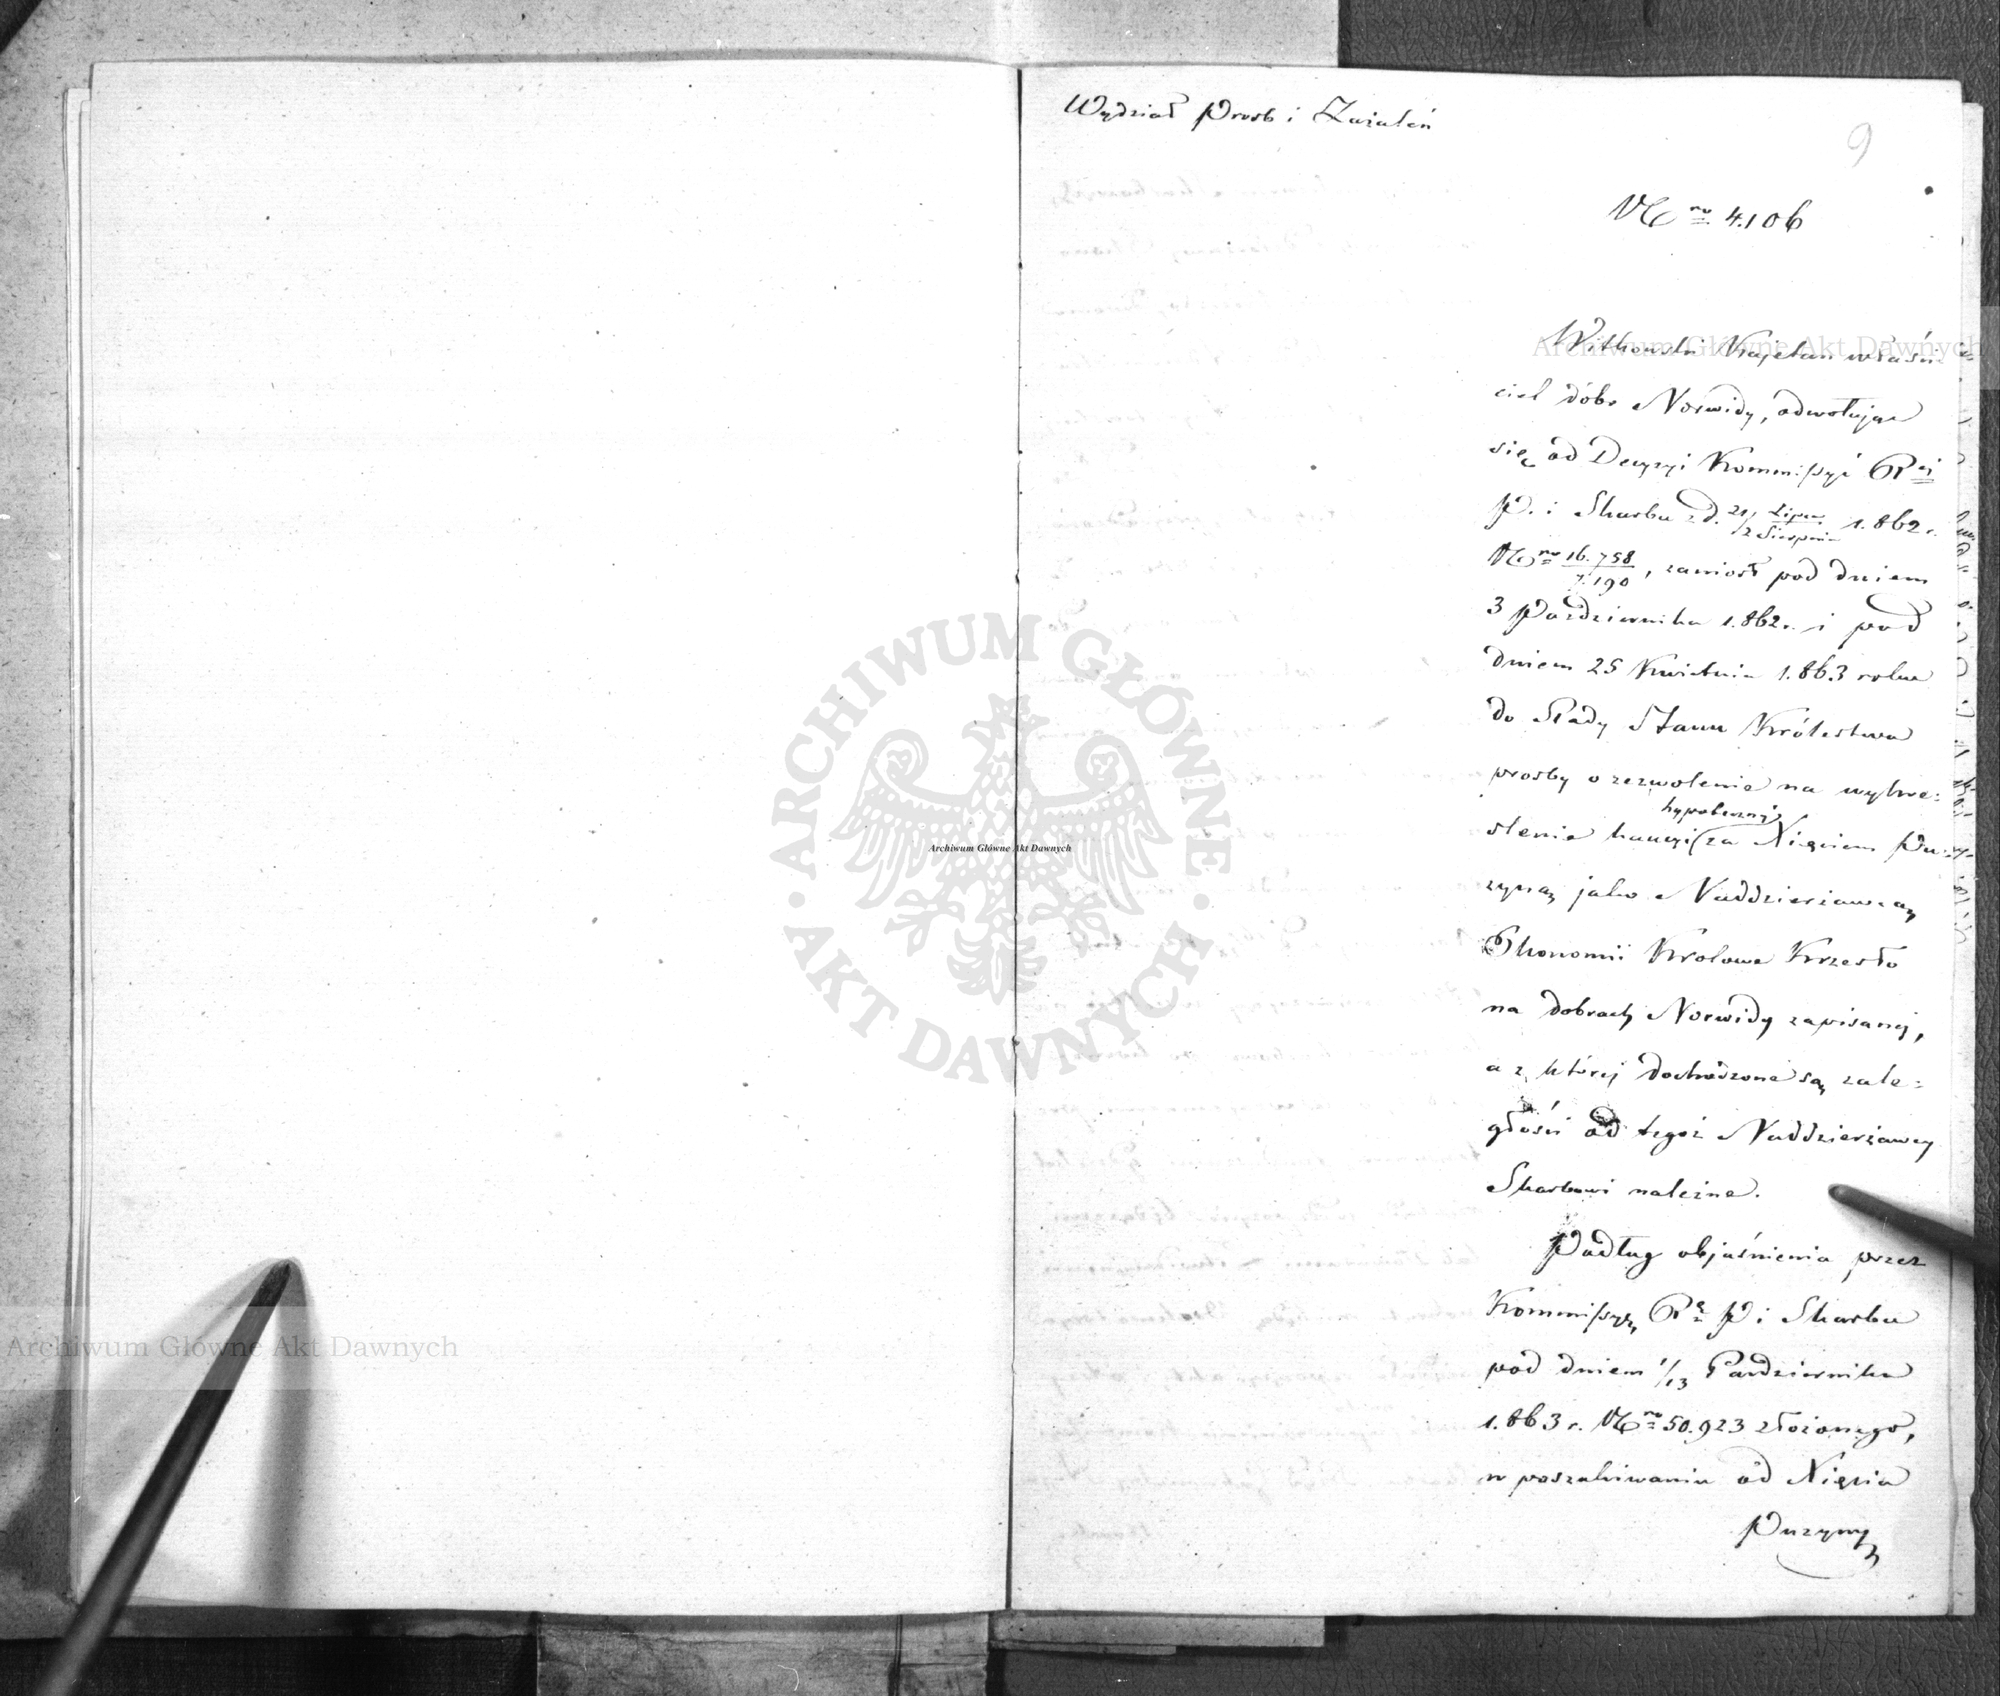 Wydział Prośb i Zażaleń
9
Nro 4.106
Witkowski Kajetan właśni-
ciel dóbr Norwidy, odwołując
się od Decyzyi Kommissyi Rej
P. i Skarbu z d. 21 Lipca/2 Sierpnia 1.862 r.
Nro 16.758/7.190, zaniósł pod dniem
3 Października 1.862 r. i pod
dniem 25 Kwietnia 1.863 roku
do Rady Stanu Królestwa
prośby o zezwolenie na wykre-
hypotecznéj
ślenie kaucyi za Xięciem Pu-
zyną jako Naddzierżawcą
Ekonomii Krolowe Krzesło
na dobrach Norwidy zapisanéj,
a z któréj dochodzone są zale-
głości od tegoż Naddzierżawcy
Skarbowi należne.
Podług objaśnienia przez
Kommissyą Rą P. i Skarbu
pod dniem 1/13 Października
1.863 r. Nro 50.923 złożonego,
w poszukiwaniu od Xięcia
Puzyny
Archiwum Główne Akt Dawnych
Archiwum Główne Akt Dawnych
Archiwum Główne Akt Dawnych
ARCHIWUM GŁÓWNE AKT DAWNYCH